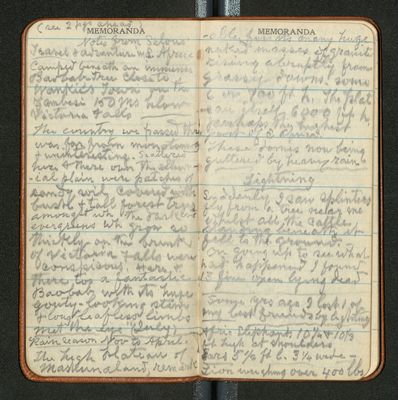 (see 2 pgs ahead)
MEMORANDA
Notes from Selous
Travel & Adventure in S. Africa
Camped beneath an immense
Baobab tree close to
Wankie's Town on the
Zambesi 150 ms below
Victoria Falls
The country we passed thro
was far from monotonous
& uninteresting. Scattered
here & there over the
plain were patches of
sandy soil covered with
bush & tall forest trees
amongst wh. the dark
evergreens wh grow so
thickly on the brink
of Victoria Falls were
conspicuous. Here &
there too a fantastic
Baobab with its huge
gouty looking stem
& long leafless limbs
met the eye (July)
Rain season Nov to April.
The high plateau of
Mashunaland, remark
MEMORANDA
-able for its many huge
naked masses of granite
rising abruptly from
grassy downs, some
6 or 800 ft h. The
itself 6000 ft h
perhaps the
part of S. Africa
These domes now being
guttered by heavy rains
Lightning
Suddenly I saw splinters
fly from a tree
whilst all the cattle
standing beneath it
fell to the ground.
On going up to see what
had happened I found
lying dead
Some yrs ago I lost 1 of
my best friends by lightning
Afric. Elephants 10½ & 10¾
ft high at shoulders
Ears 5½ ft l. 3¼ wide -
Lion weighing over 400 lbs